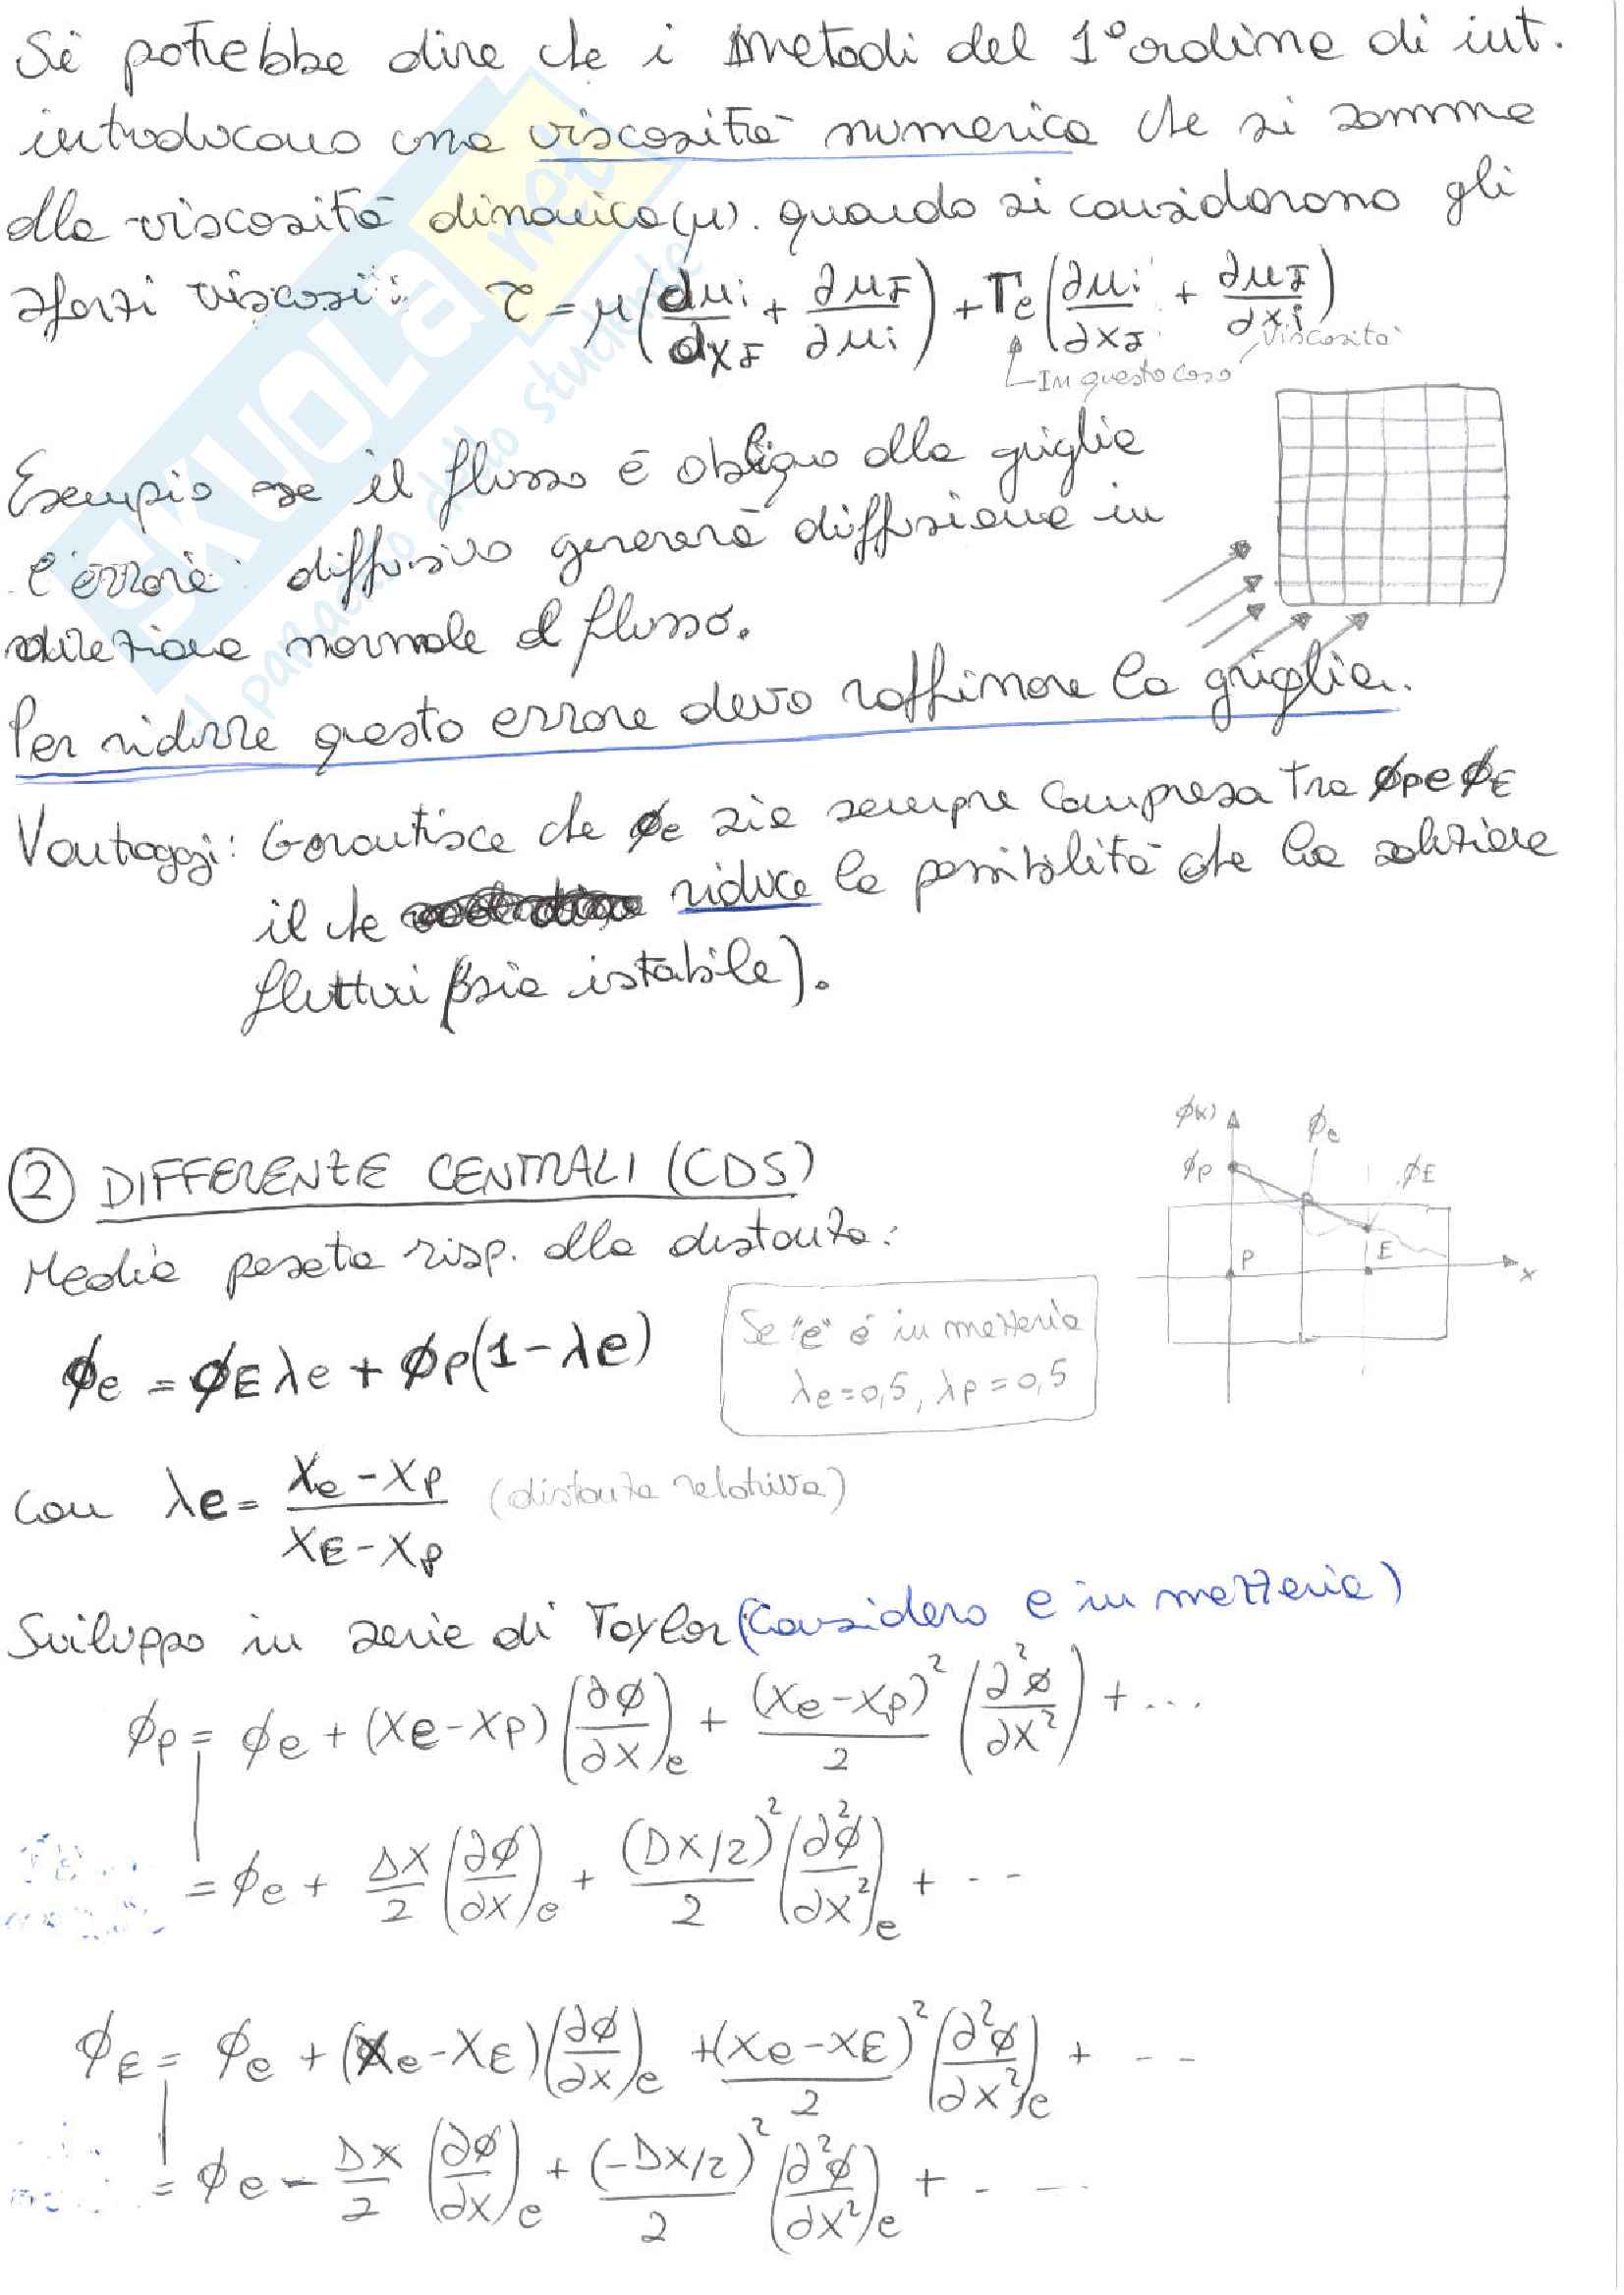 Si potrebbe dire che i metodi del 1° ordine di int.
introducono una viscosità numerica che si somma
alla viscosità dinamica (μ). quando si considerano gli
sforzi viscosi: τ = μ(dui/dxJ + ∂uJ/∂ui) + Γe(∂ui/∂xJ + ∂uJ/∂xi)
In questo caso viscosità
Esempio se il flusso è obliquo alla griglia
l'errore diffusivo genererà diffusione in
direzione normale al flusso.
Per ridurre questo errore devo raffinare la griglia.
Vantaggi: Garantisce che φe sia sempre compresa tra φP e φE
il che riduce la possibilità che la soluzione
fluttui (sia instabile).
② DIFFERENZE CENTRALI (CDS)
Media pesata risp. alla distanza:
φe = φE λe + φP(1-λe)
Se "e" è in mezzeria
λe=0,5, λP=0,5
con λe = (xe - xP)/(xE - xP) (distanza relativa)
φ(x)
φP
φe
φE
P
E
x
Sviluppo in serie di Taylor (Considero e in mezzeria)
φP = φe + (xe - xP)(∂φ/∂x)e + (xe - xP)²/2 (∂²φ/∂x²) + ...
= φe + Δx/2 (∂φ/∂x)e + (Δx/2)²/2 (∂²φ/∂x²)e + ...
φE = φe + (xe - xE)(∂φ/∂x)e + (xe - xE)²/2 (∂²φ/∂x²)e + ...
= φe - Δx/2 (∂φ/∂x)e + (-Δx/2)²/2 (∂²φ/∂x²)e + ...
SKUOLA.net
il paradiso dello studente